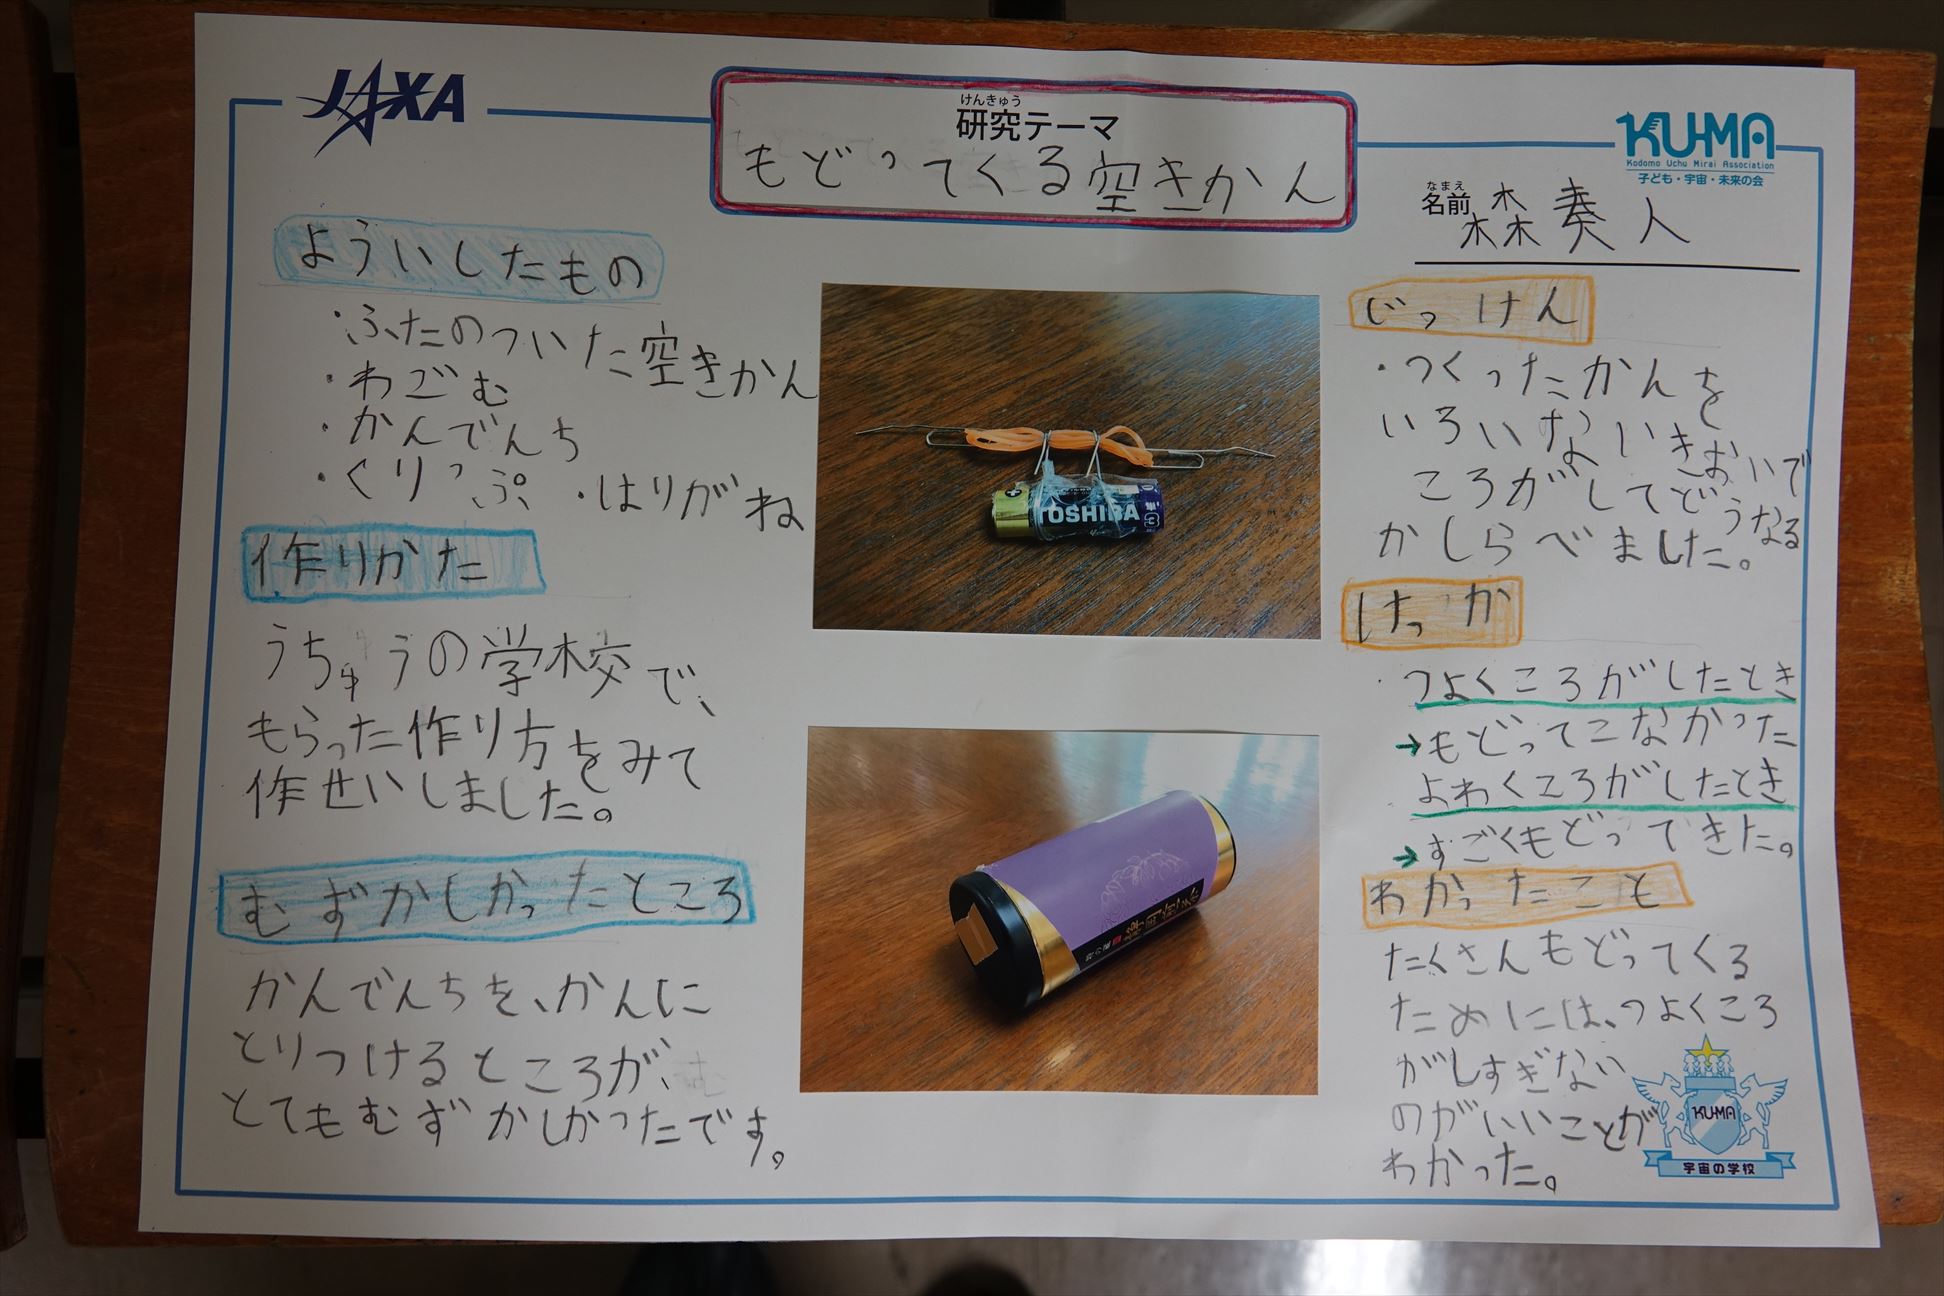 JAXA
けんきゅう
研究テーマ
もどってくる空きかん
KU-MA
Kodomo Uchu Mirai Association
子ども・宇宙・未来の会
なまえ
名前 森奏人
よういしたもの
・ふたのついた空きかん
・わごむ
・かんでんち
・くりっぷ ・はりがね
作りかた
うちゅうの学校で、
もらった作り方をみて
作せいしました。
むずかしかったところ
かんでんちを、かんに
とりつけるところが、
とてもむずかしかったです。
TOSHIBA
単3
じっけん
・つくったかんを
いろいろないきおいで
ころがしてどうなる
かしらべました。
けっか
・つよくころがしたとき
→もどってこなかった
よわくころがしたとき
→すごくもどってきた。
わかったこと
たくさんもどってくる
ためには、つよくころ
がしすぎない
のがいいことが
わかった。
KU-MA
宇宙の学校